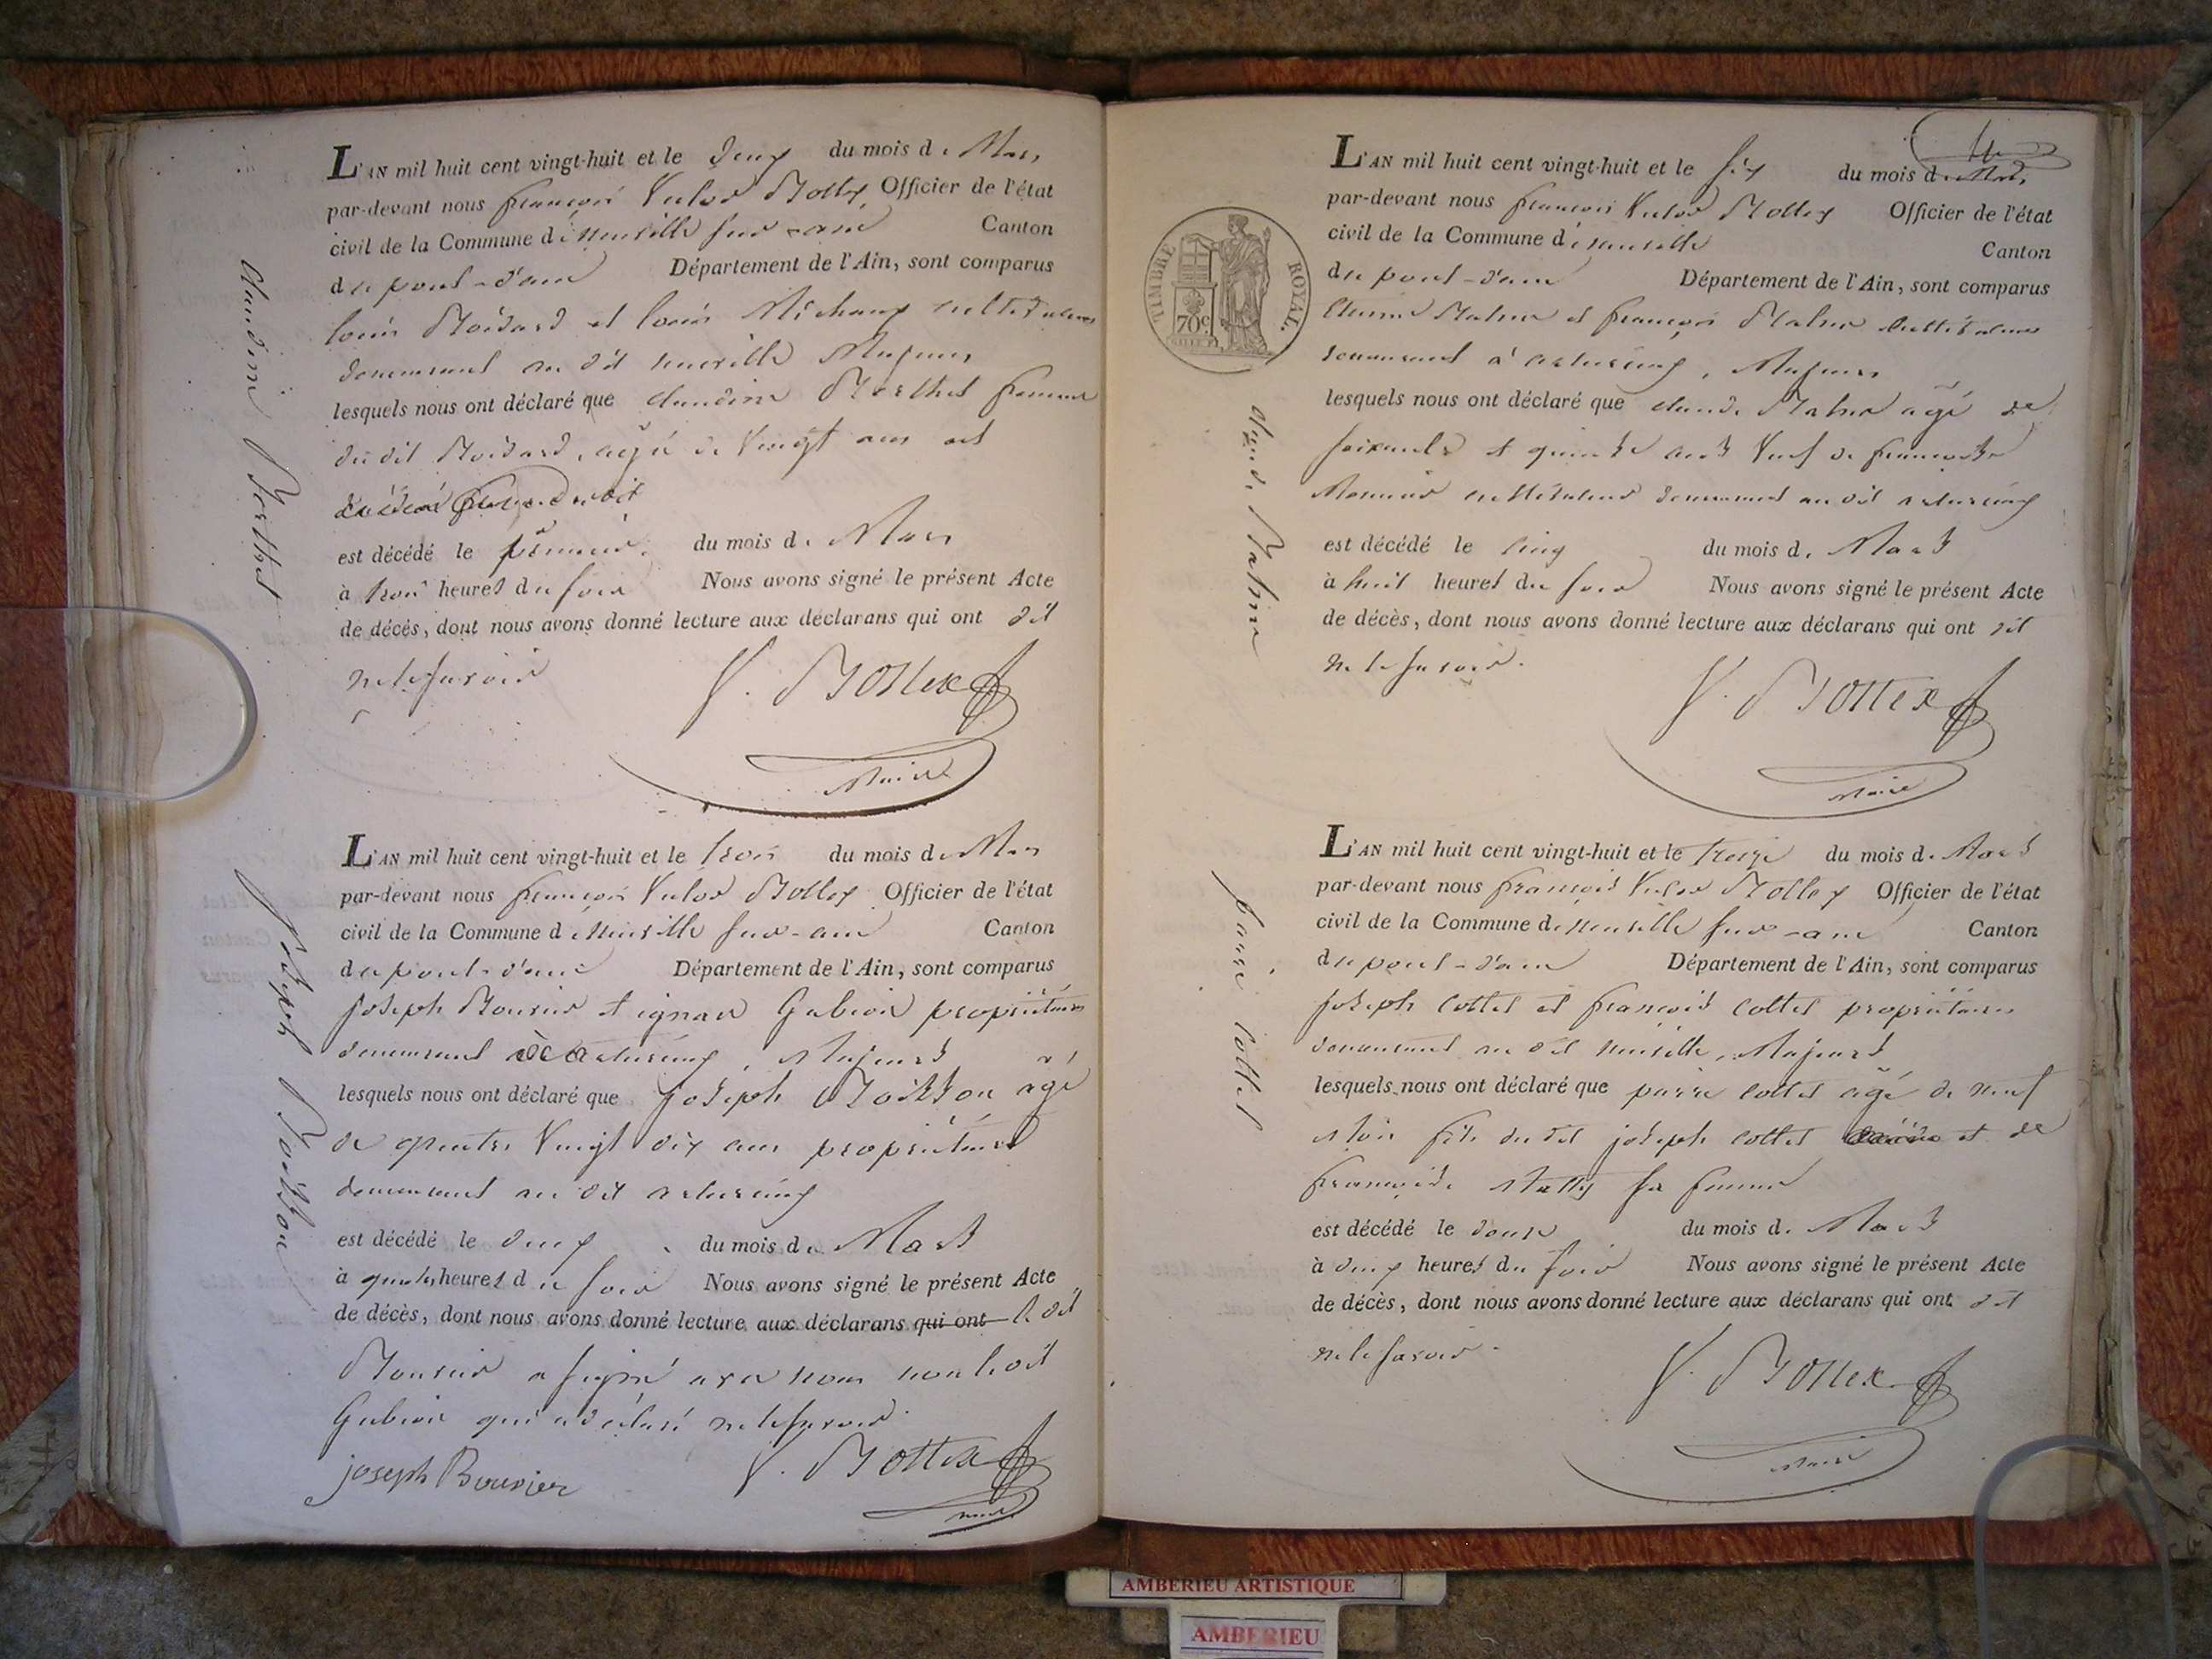 L'AN mil huit cent vingt-huit et le deux du mois de Mars
par-devant nous françois Victor Bottex Officier de l'état
civil de la Commune de neuville sur-ain Canton
du pont-d'ain Département de l'Ain, sont comparus
louis Boidard et louis Michaux cultivateurs
demeurant au dit neuville Majeurs
lesquels nous ont déclaré que claudine Berthet femme
du dit Boidard, agé de Vingt ans est
est décédé le premier du mois de Mars
à trois heures du soir Nous avons signé le présent Acte
de décès, dont nous avons donné lecture aux déclarans qui ont dit
ne le savoir
V. Bottex
Maire
Claudine Berthet
L'AN mil huit cent vingt-huit et le trois du mois de Mars
par-devant nous françois Victor Bottex Officier de l'état
civil de la Commune de Neuville sur-ain Canton
du pont-d'ain Département de l'Ain, sont comparus
joseph Bouvier et ignace Gubian propriétaires
demeurant, Majeurs
lesquels nous ont déclaré que joseph Boisson agé
de quatre Vingt dix ans propriétaire
demeurant au dit
est décédé le deux du mois de Mars
à quatre heures du soir Nous avons signé le présent Acte
de décès, dont nous avons donné lecture aux déclarans qui ont le dit
Bouvier a signé avec nous non le dit
Gubian qui a déclaré ne le savoir
joseph Bouvier V. Bottex
maire
joseph Boisson
L'AN mil huit cent vingt-huit et le six du mois de Mars
par-devant nous françois Victor Bottex Officier de l'état
civil de la Commune de neuville Canton
du pont-d'ain Département de l'Ain, sont comparus
et françois cultivateurs
demeurant à, Majeurs
lesquels nous ont déclaré que claude agé de
soixante et quinze ans Veuf de françoise
Monnier cultivateur demeurant au dit
est décédé le cinq du mois de Mars
à huit heures du soir Nous avons signé le présent Acte
de décès, dont nous avons donné lecture aux déclarans qui ont dit
ne le savoir.
V. Bottex
Maire
TIMBRE ROYAL.
70c
claude
L'AN mil huit cent vingt-huit et le treize du mois de Mars
par-devant nous françois Victor Bottex Officier de l'état
civil de la Commune de neuville sur-ain Canton
du pont-d'ain Département de l'Ain, sont comparus
joseph cottet et françois cottet propriétaires
demeurant au dit neuville, Majeurs
lesquels nous ont déclaré que pierre cottet agé de neuf
Mois fils du dit joseph cottet et de
françoise sa femme
est décédé le douze du mois de Mars
à deux heures du soir Nous avons signé le présent Acte
de décès, dont nous avons donné lecture aux déclarans qui ont dit
ne le savoir.
V. Bottex
Maire
pierre cottet
AMBERIEU ARTISTIQUE
AMBERIEU